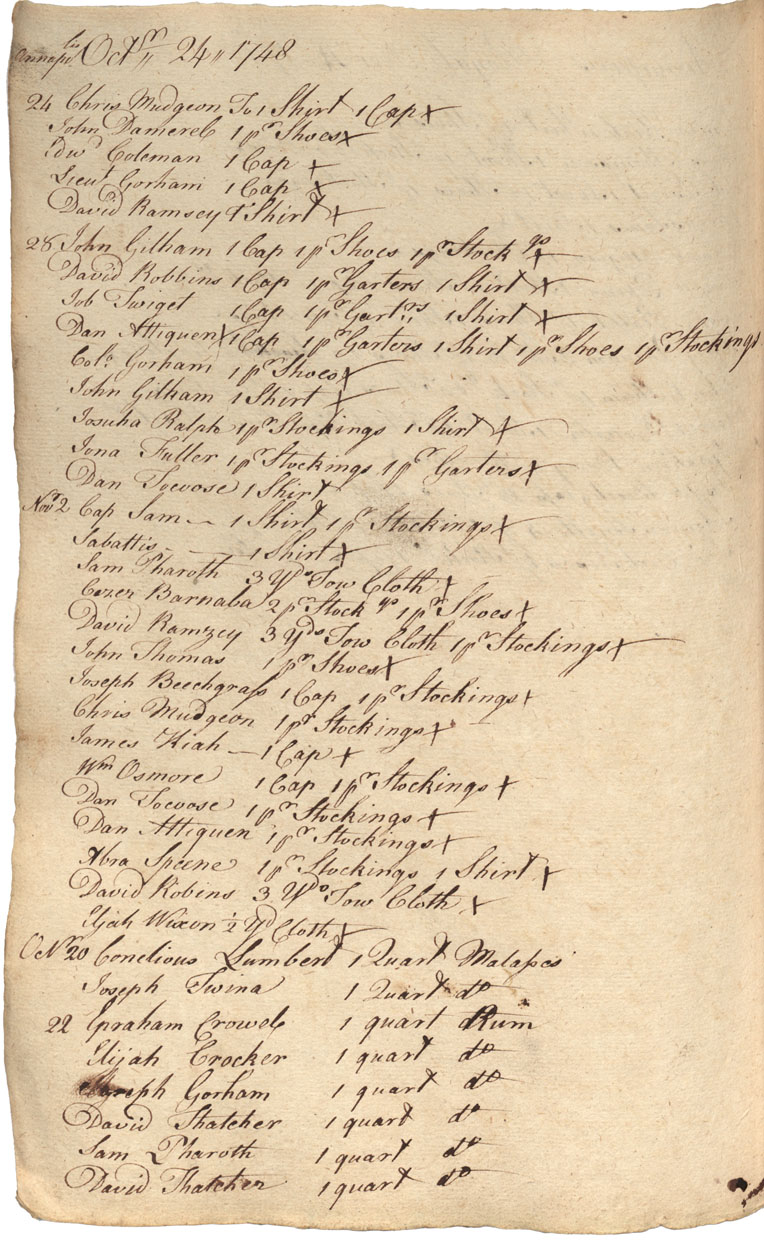 Annapolis Octbr 24 1748
24 Chris Mudgeon To 1 Shirt 1 Cap x
John Damerel 1 pr Shoes x
Edwd Coleman 1 Cap x
Lieut Gorham 1 Cap x
David Ramsey 1 Shirt x
28 John Gilham 1 Cap 1 pr Shoes 1 pr Stockgs x
David Robbins 1 Cap 1 pr Garters 1 Shirt x
Job Twiget 1 Cap 1 pr Gartrs 1 Shirt x
Dan Attiquen x 1 Cap 1 pr Garters 1 Shirt 1 pr Shoes 1 pr Stockings
Colo Gorham 1 pr Shoes x
John Gilham 1 Shirt x
Josuha Ralph 1 pr Stockings 1 Shirt x
Jona Fuller 1 pr Stockings 1 pr Garters x
Dan Toevose 1 Shirt
Novr 2 Cap Sam 1 Shirt 1 pr Stockings x
Sabattis 1 Shirt x
Sam Pharoth 3 Yds Tow Cloth x
Cezer Barnaba 2 pr Stockgs 1 pr Shoes x
David Ramzey 3 Yds Tow Cloth 1 pr Stockings x
John Thomas 1 pr Shoes x
Joseph Beechgrass 1 Cap 1 pr Stockings x
Chris Mudgeon 1 pr Stockings x
James Kiah 1 Cap x
Wm Osmore 1 Cap 1 pr Stockings x
Dan Toevose 1 pr Stockings x
Dan Attiquen 1 pr Stockings x
Abra Speene 1 pr Stockings 1 Shirt x
David Robins 3 Yds Tow Cloth x
Eljah Wixon ½ Yd Cloth x
20 Conelious Lumbert 1 Quart Malases
Joseph Twina 1 Quart do
22 Epraham Crowel 1 quart Rum
Elijah Crocker 1 quart do
Joseph Gorham 1 quart do
David Thatcher 1 quart do
Sam Pharoth 1 quart do
David Thatcher 1 quart do